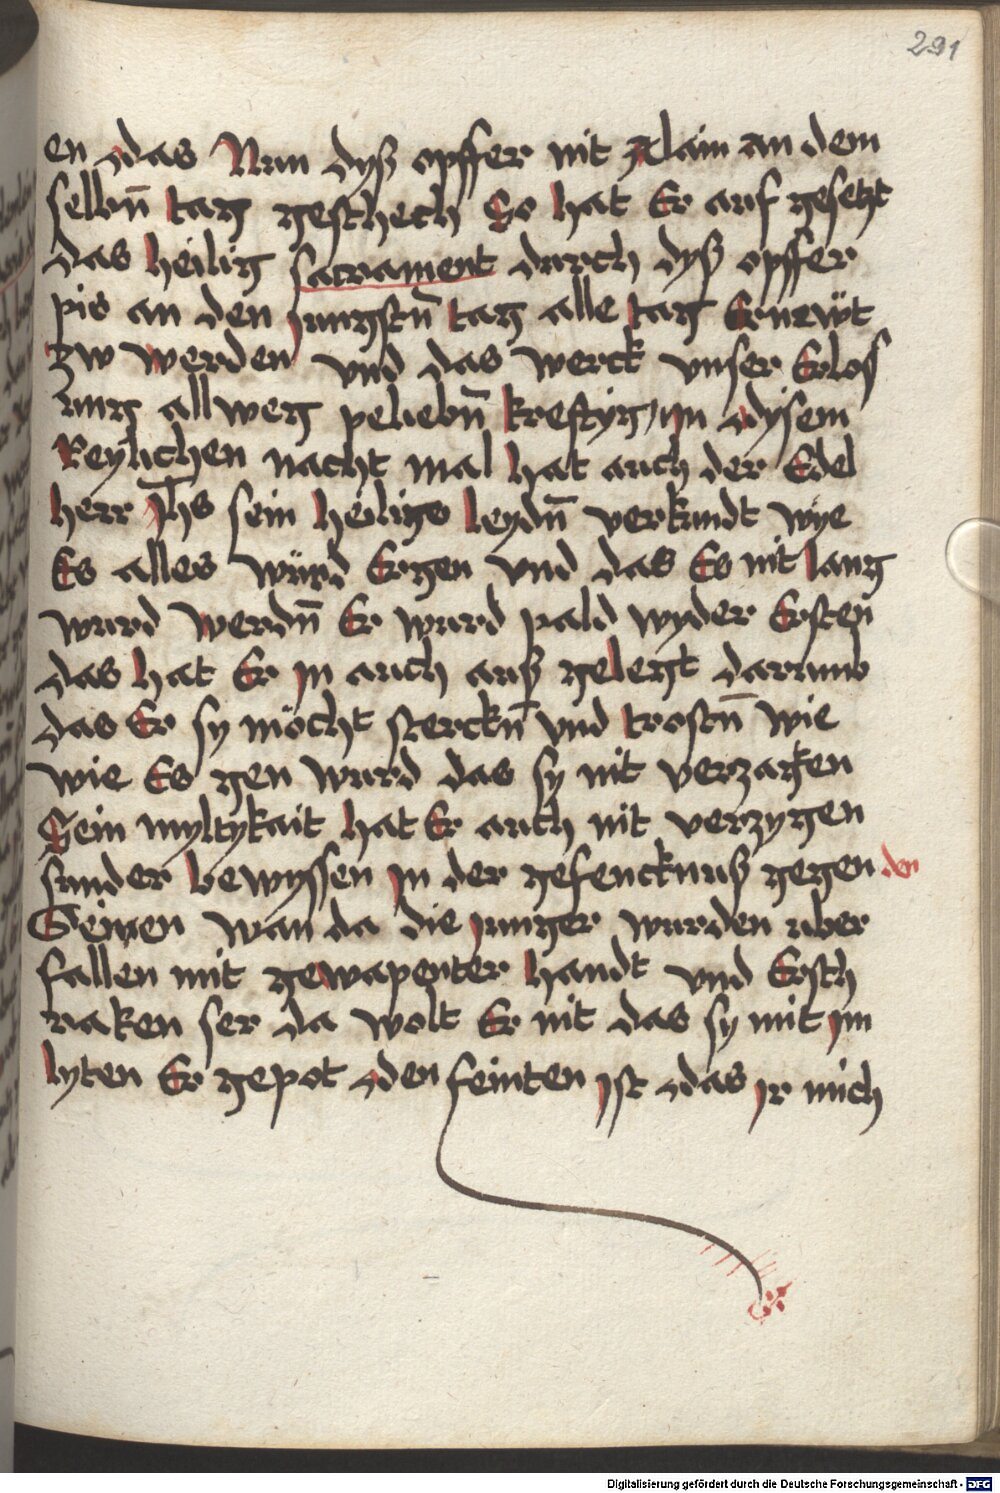 291
en das Nun dyß opffer nit Alain an dem
selbn̄ tag geschech So hat Er auf gesetzt
das heilig sacrament durch dyß opffer
pis an den jungstn̄ tag alle tag Ernewt
zw werden und das werck unser Erlos
ung allweg peliebn̄ kreftyg / jn dysem
Reylichen nacht mal hat auch der Edel
herr Jhs sein heiligs leydn̄ verkundt wye
Es alles würd Ergen vnd das Es nit lang
wurd werdn̄ Er wurd pald wyder Ersten
das hat Er jn auch auß gelegt darumb
das Er sy möcht sterckn̄ vnd trostn̄ wie
wie Es gen wurd das sy nit verzagen
Sein myltykait hat Er auch nit verzygen
sunder bewyssen jn der gefencknuß gegen den
Seinen wan da die junger wurden uber
fallen mit gewapenter handt vnd Ersch
raken ser da wolt Er nit das sy mit jm
lyten Er gepot den feinten jst das jr mich
Digitalisierung gefördert durch die Deutsche Forschungsgemeinschaft - DFG